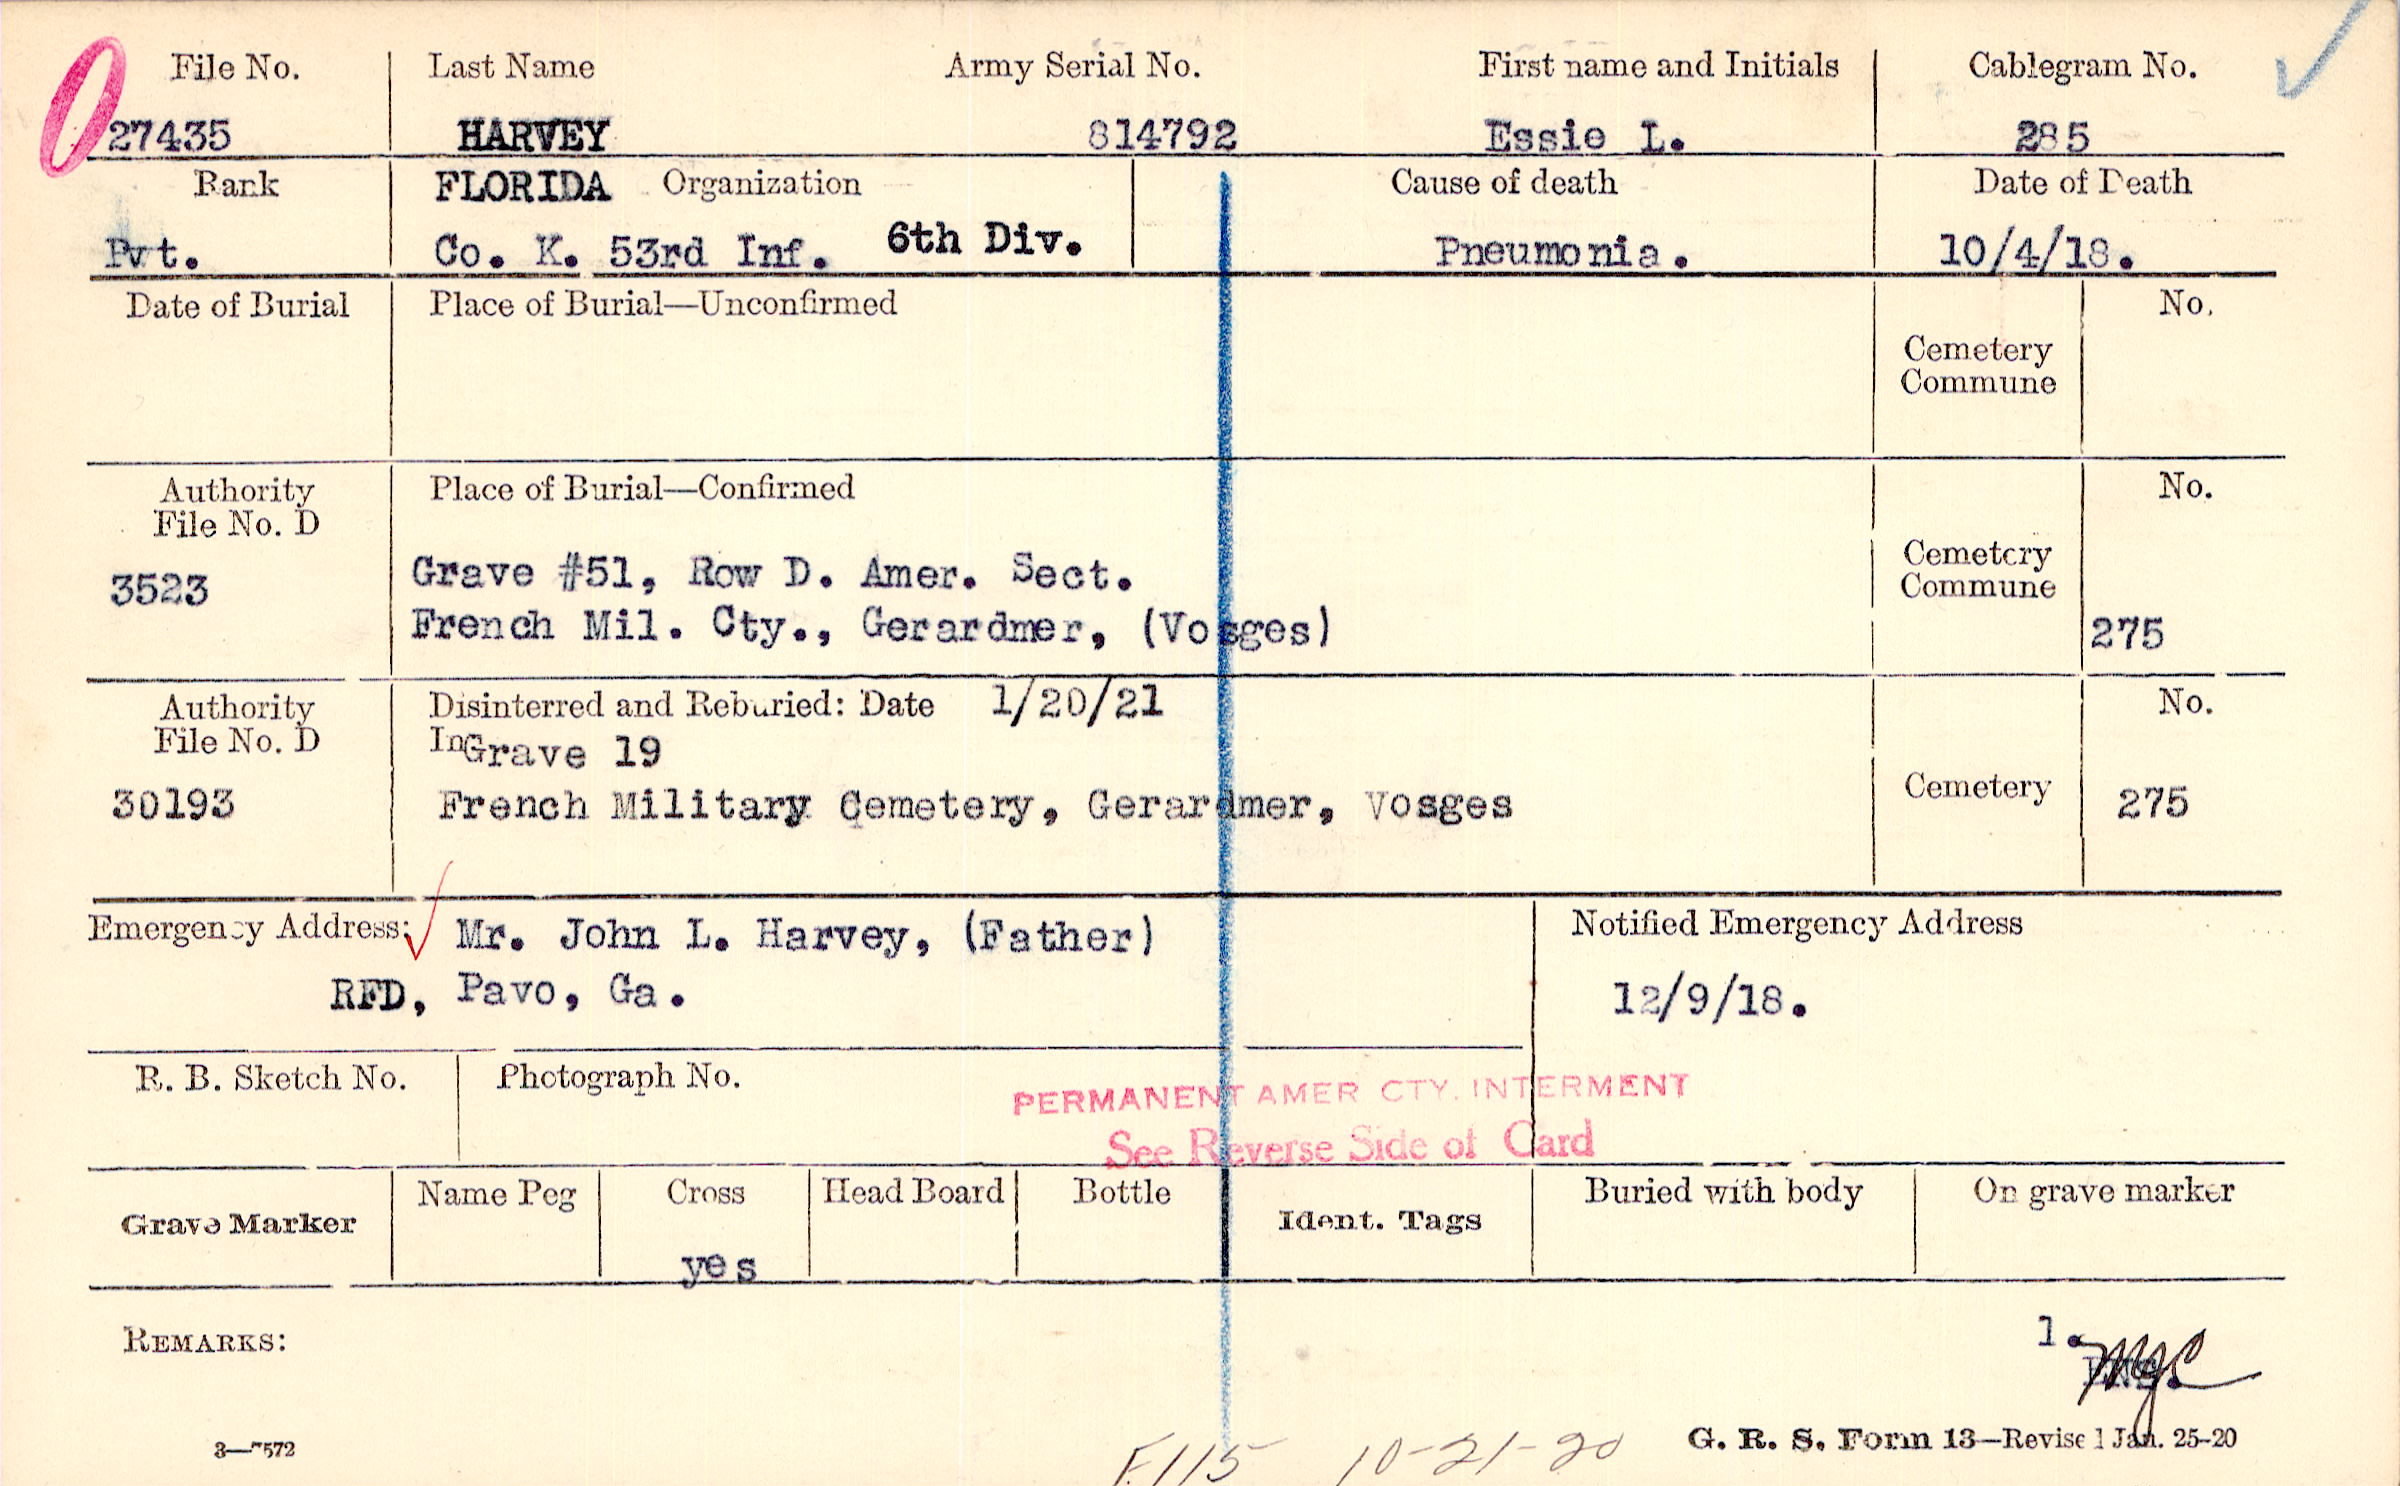 File No. Last Name Army Serial No. First name and Initials Cablegram No.
27435 HARVEY 814792 Essie L. 285
Rank FLORIDA Organization Cause of death Date of Death
Pvt. Co. K. 53rd Inf. 6th Div. Pneumonia. 10/4/18.
Date of Burial Place of Burial—Unconfirmed No.
Cemetery
Commune
Authority Place of Burial—Confirmed No.
File No. D
3523 Grave #51, Row D. Amer. Sect. Cemetery
Commune
French Mil. Cty., Gerardmer, (Vosges) 275
Authority Disinterred and Reburied: Date 1/20/21 No.
File No. D In Grave 19
30193 French Military Cemetery, Gerardmer, Vosges Cemetery 275
Emergency Address: Mr. John L. Harvey, (Father) Notified Emergency Address
RFD, Pavo, Ga. 12/9/18.
R. B. Sketch No. Photograph No.
PERMANENT AMER CTY. INTERMENT
See Reverse Side of Card
Grave Marker Name Peg Cross Head Board Bottle Ident. Tags Buried with body On grave marker
yes
REMARKS:
1.
3—7572 F.115 10-21-20 G. R. S. Form 13—Revised Jan. 25-20